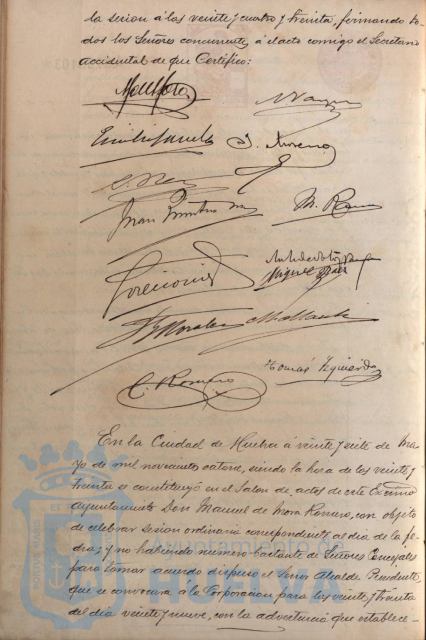 la sesion á las veinte y cuatro y treinta, firmando to-
dos los Señores concurrentes á el acto comigo el Secretario
accidental de que Certifico:
J. Moreno
M. R
F. Morales
Tomás Izquierdo
C. Romero
En la Ciudad de Huelva á veinte y siete de Ma-
yo de mil novecientos catorce, siendo la hora de las veinte y
treinta se constituyó en el Salon de actos de este Excmo
Ayuntamiento Don Manuel de Mora Romero, con objeto
de celebrar sesion ordinaria correspondiente al dia de la fe-
cha; y no habiendo número bastante de Señores Concejales
para tomar acuerdo dispuso el Señor Alcalde Presidente,
que se convocara á la Corporacion para las veinte y treinta
del dia veinte y nueve, con la advertencia que establece-